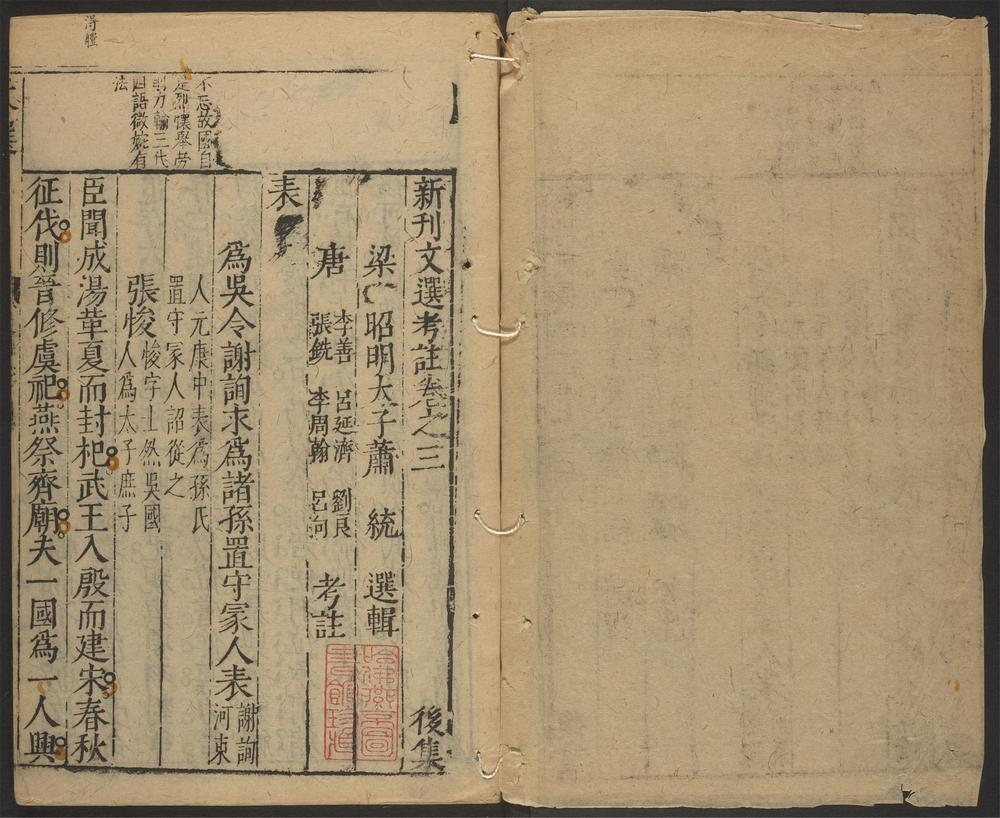 新刊文選考註卷之三　後集
梁　昭明太子蕭　統　選輯
唐　李善　呂延濟　劉良
張銑　李周翰　呂向　考註
哈佛燕京圖書館珍藏
表
爲吳令謝詢求爲諸孫置守冢人表　謝詢
河東
人元康中表爲孫氏
置守冢人詔從之
張悛　悛字士然吳國
人爲太子庶子
臣聞成湯革夏而封杞武王入殷而建宋春秋
征伐則晉修虞祀燕祭齊廟夫一國爲一人興
不忘故國自
四語微婉有
法
得體